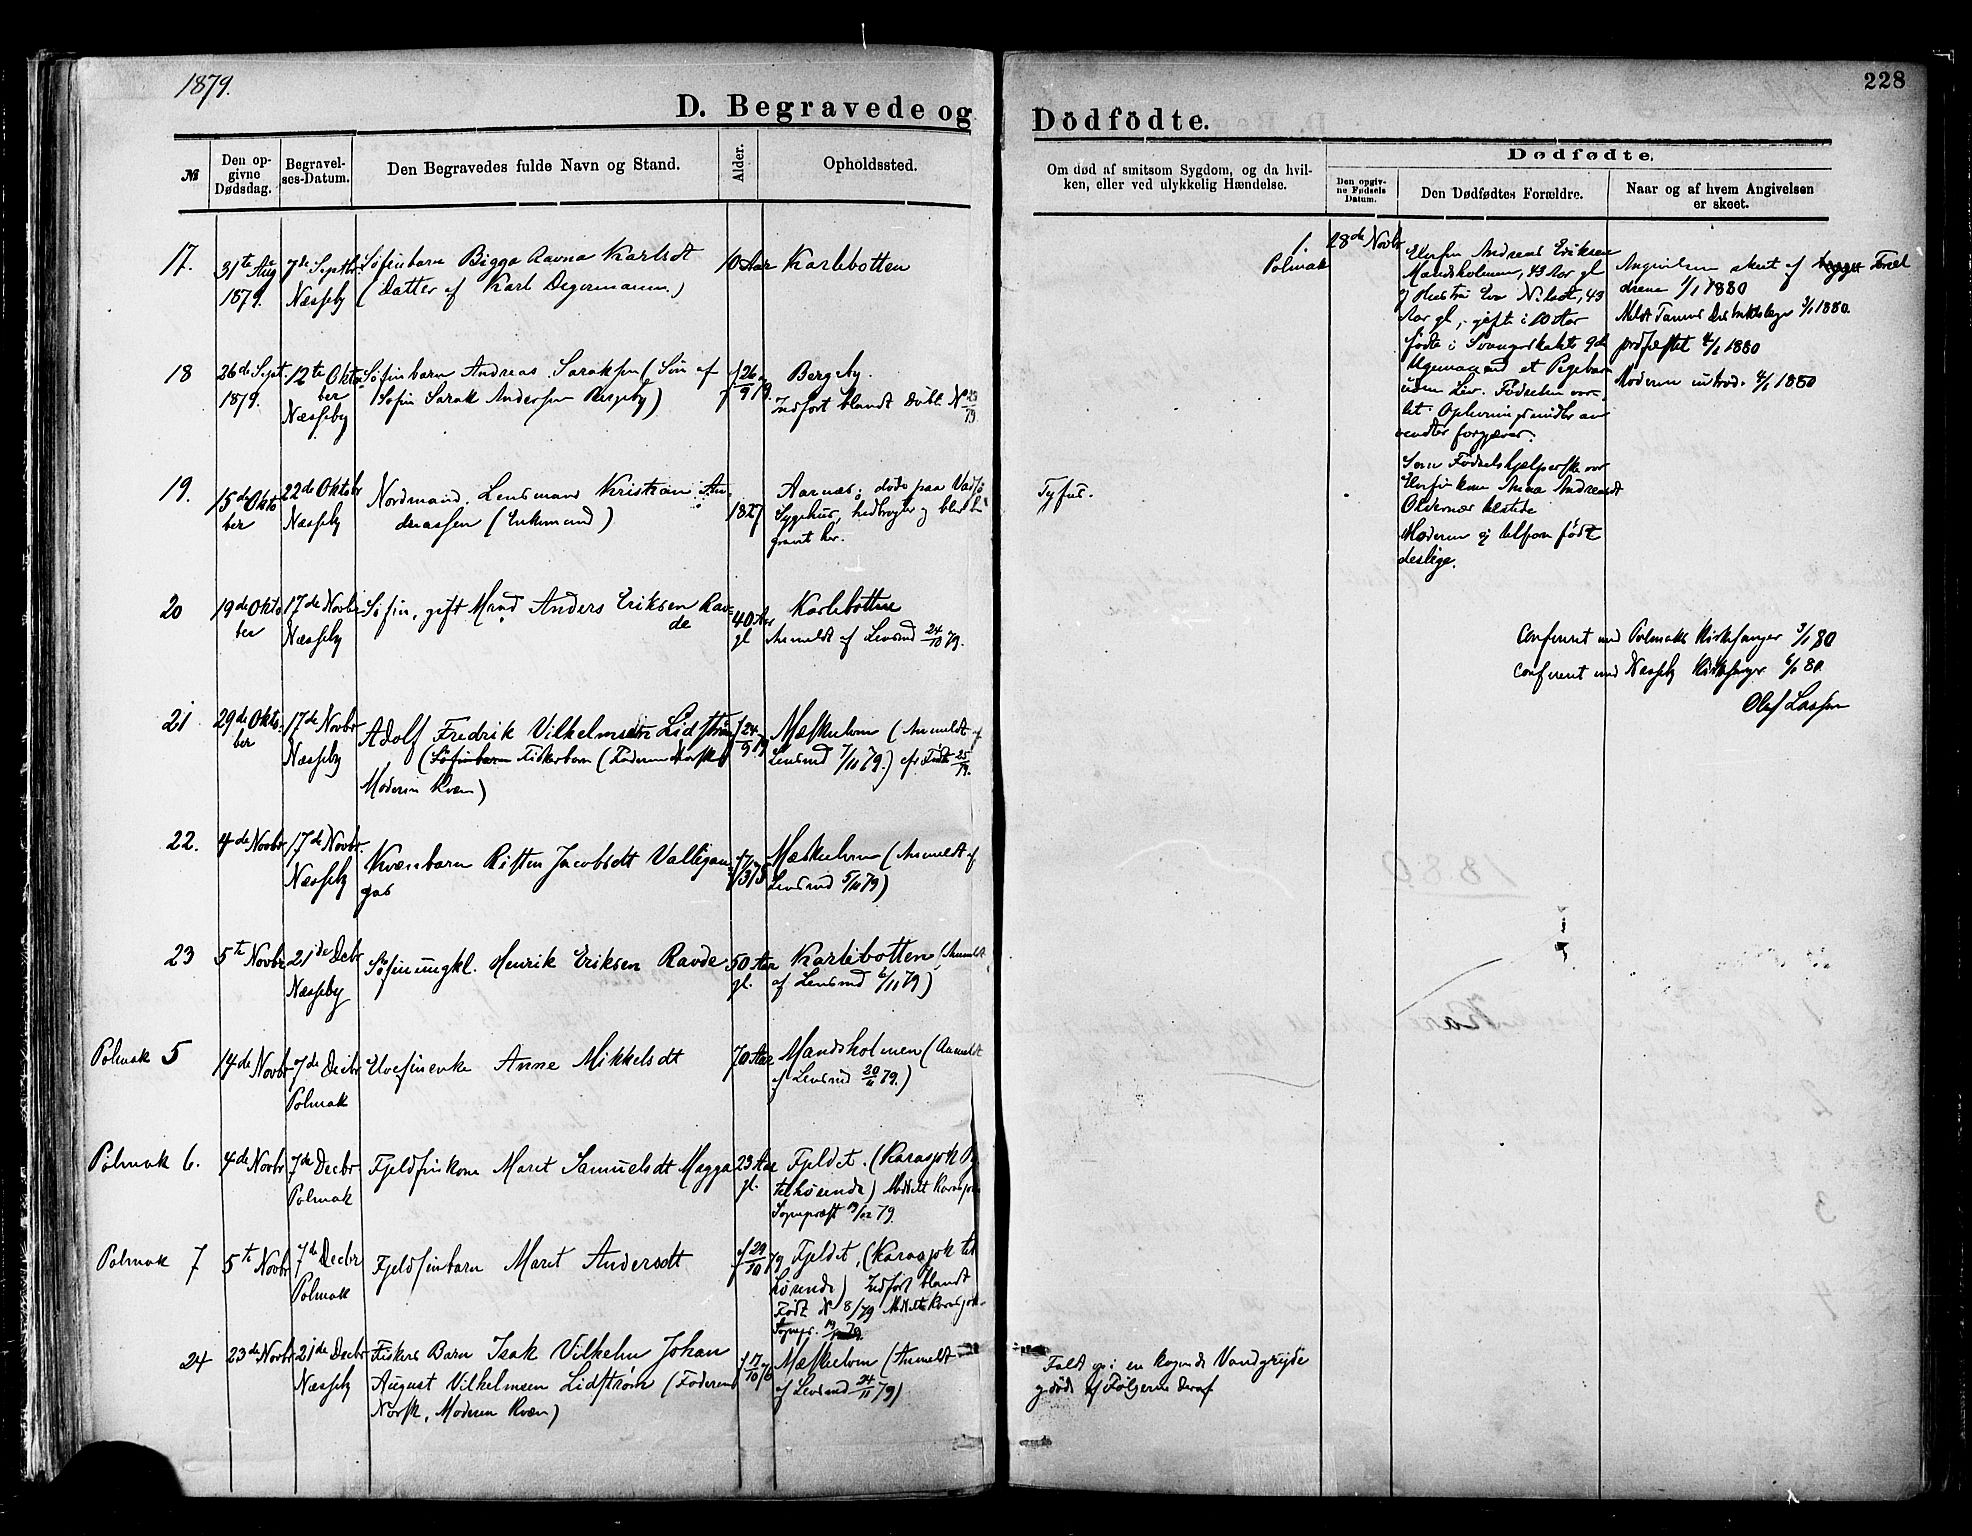 1879.
228
D. Begravede og Dödfödte.
№
Den opgivne Dødsdag.
Begravelses-Datum.
Den Begravedes fulde Navn og Stand.
Alder.
Opholdssted.
Om død af smitsom Sygdom, og da hvilken, eller ved ulykkelig Hændelse.
Dødfødte.
Den opgivne Fødsels Datum.
Den Dødfødtes Forældre.
Naar og af hvem Angivelsen er skeet.
17.
31te Aug
1879.
7de Septbr
Næsseby
Søfinbarn Bigga Aavna Karlsdt
(Datter af Karl Degermann.)
10 Aar
Karlebotten
18
26de Sept.
1879.
12te Oktober
Næsseby
Søfinbarn Andreas Saraksen (Søn af
Søfin Sarak Andersen Bergeby)
f 26/9 79.
Bergeby.
Indført blandt Døbt. N 23/79
19.
15de Oktober
22de Oktobr
Næsseby
Nordmand, Lensmand Kristian Andreassen (Enkemand)
1827
Aarnæs; døde paa Vadsø
Sygehus, hidbragtes og blev begravet her.
Tyfus.
20
19de Oktober
17de Novbr
Næsseby
Søfin, gift Mand Anders Eriksen Ravde
40 Aar
gl
Karlebotten
Anmeldt af Lensmd 24/10 79.
21
29de Oktober
17de Novbr
Næsseby
Adolf Fredrik Vilhelmsen Lidstrøm
(Søfinbarn Fiskerbarn (Faderen Norsk
Moderen Kvæn)
f 24/9 79
Mæskelven (Anmeldt af
Lensmd 7/11 79.) cfr Fødte 25/79.
22.
4de Novbr
17de Novbr.
Næsseby
Kvænbarn Risten Jacobsdt Vallijangas
Mæskelven (Anmeldt af
Lensmd 5/11 79)
23
5te Novbr
21de Decbr
Næsseby
Søfinungkl. Henrik Eriksen Ravde
50 Aar
gl.
Karlebotten (Anmeldt
af Lensmd 6/11 79)
Polmak 5
14de Novbr
7de Decbr
Polmak
Elvefinenke Anne Mikkelsdt
70 Aar
Mandsholmen (Anmeldt
af Lensmd 20/11 79.)
Polmak 6.
4de Novbr
7de Decbr
Polmak
Fjeldfinkone Maret Samuelsdt Magga
23 Aar
gl.
Fjeldet. (Karasjok
tilhørende) Meldt Karasjok
Sognepræst 19/12 79.
Polmak 7
5te Novbr
7de Decbr
Polmak
Fjeldfinbarn Maret Andersdt
f 29/10 79
Fjeldet, (Karasjok tilhørende) Indført blandt
Født N 8/79 Meldt Karasjok
Sognepr. 19/12 79.
24
23de Novbr
21de Decbr
Næsseby
Fiskers Barn Isak Vilhelm Johan
August Vilhelmsen Lidstrøm (Faderen
Norsk, Moderen Kvæn)
f 17/10 76
Mæskelven (Anmeldt
af Lensmd 24/11 79)
Faldt i en kogende Vandgryde
og døde af Følgerne deraf
1.
Polmak
28de Novbr
Elvefin Andreas Eriksen
Mandsholmen, 43 Aar gl
og Hustru Eva Nilsdt, 43
Aar gl, gifte i 10 Aar
fødte i Svangerskabets 9de
Ugemaaned et Pigebarn
uden Liv. Fødselen
let. Oplivningsmidler anvendtes forgjæves.
Som Fødselshjælperske var
Elvefinkone Anna Andreasdt
Oldernæs tilstede
Moderen ej tilforn født
deslige.
Angivelsen skeet af Forældrene 1/1 1880
Meldt Tanens Distriktslæge 3/1 1880.
jordfæstet 4/1 1880
Moderen introd. 4/1 1880
Confereret med Polmaks Kirkesanger 3/1 80
Confereret med Næsseby Kirkesanger 6/1 80.
Olaf Lassen